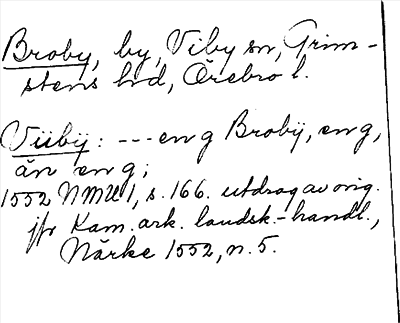 Broby, by, Viby sn, Grim-
stens hd, Örebro l.
Viibÿ: --- en g Brobÿ, en g,
än en g;
1552 NMU 1, s. 166. utdrag av orig.
jfr Kam. ark. landsk.-handl.,
Närke 1552, n. 5.